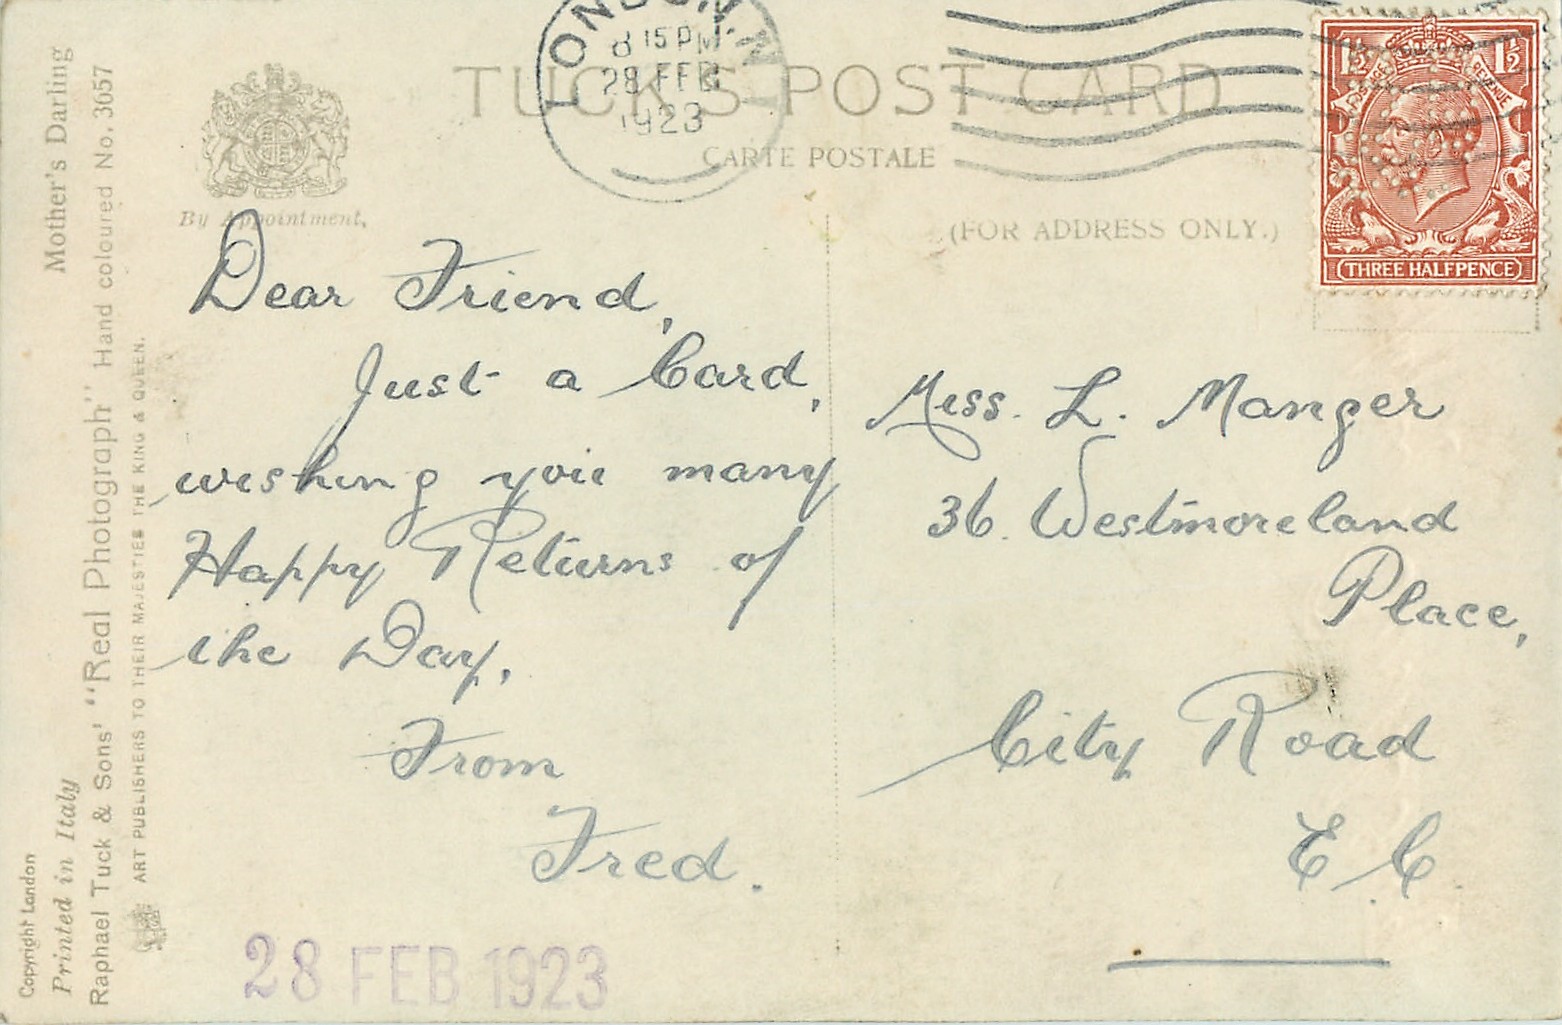 LONDON. N
8 15 PM
28 FEB
1923
TUCK'S POST CARD
CARTE POSTALE
(FOR ADDRESS ONLY.)
By Appointment,
1½ 1½
POSTAGE REVENUE
THREE HALFPENCE
Mother's Darling
Copyright London
Printed in Italy
Raphael Tuck & Sons' "Real Photograph" Hand coloured No. 3657
ART PUBLISHERS TO THEIR MAJESTIES THE KING & QUEEN.
Dear Friend,
Just a Card,
wishing you many
Happy Returns of
the Day,
From
Fred.
28 FEB 1923
Miss. L. Manger
36. Westmoreland
Place,
City Road
E C